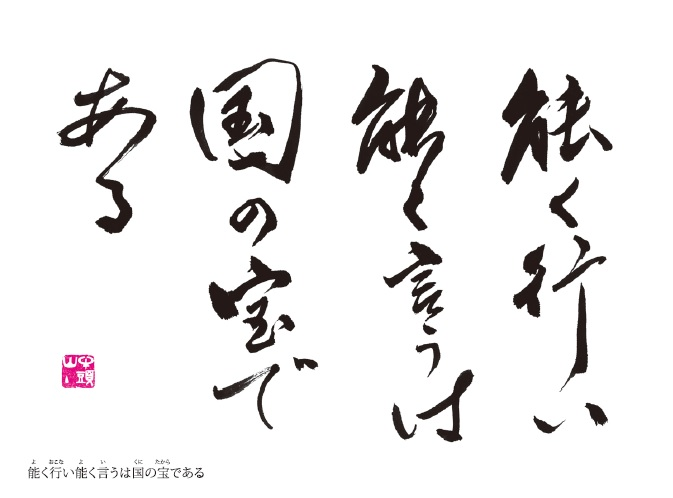 能く行い
能く言うは
国の宝で
ある
能く行い能く言うは国の宝である
よ おこな よ い くに たから